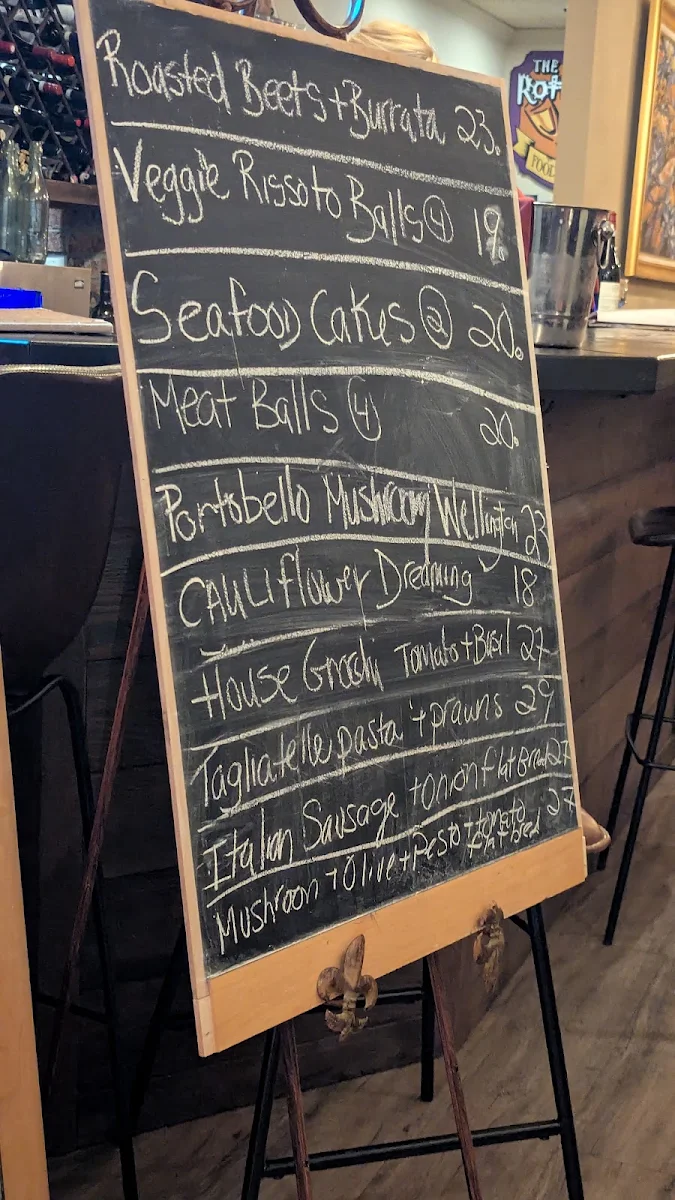 Roasted Beets + Burrata 23.
Veggie Rissoto Balls 4 19.
Seafood Cakes 2 20.
Meat Balls 4 20.
Portobello Mushroom Wellington 23
CAULiflower Dreaming 18
House Gnocchi Tomato + Basil 27
Tagliatelle pasta + prawns 29
Italian Sausage + onion flat Bread 27
Mushroom + Olive + Pesto + tomato 27
flat bred
THE
FOOD